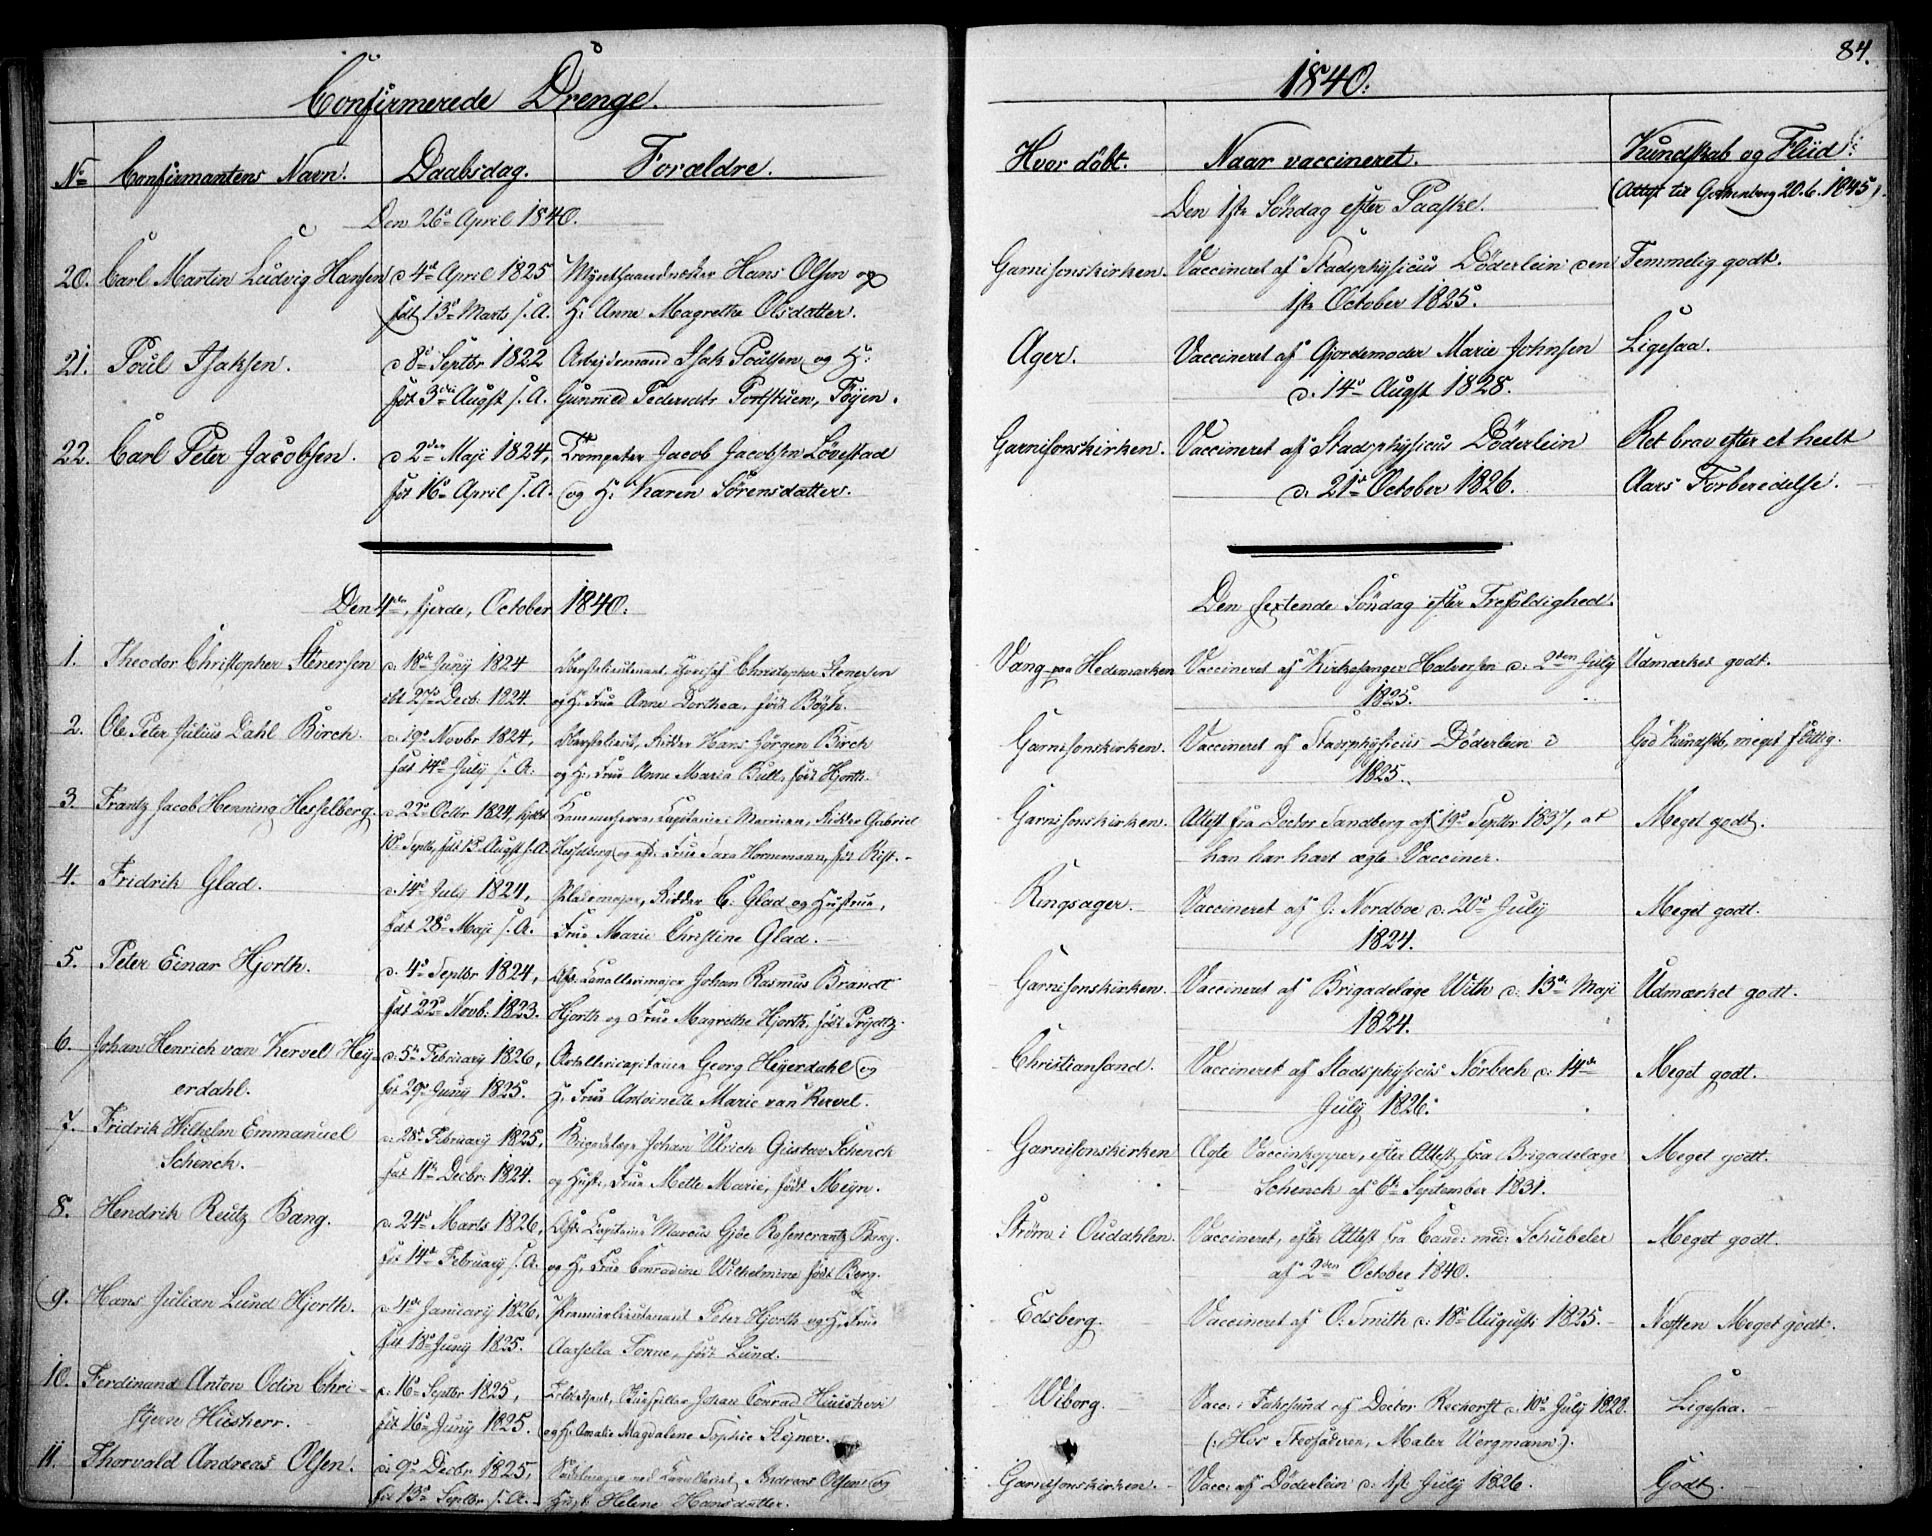 Confirmerede Drenge.
No Confirmantens Navn. Daabsdag. Forældre.
Den 26de April 1840.
20. Carl Martin Ludvig Hansen d 4de April 1825 Myntsvandmester Hans Olsen og
født 13de Marts s. A. H. Anne Magrethe Olsdatter.
21. Poul Isaksen. d 8de Septbr 1822 Arbeidsmand Isak Poulsen og H:
født 3die Augst s. A. Gunnild Pedersdtr Portstuen, Tøyen.
22. Carl Peter Jacobsen. d 2den Maji 1824, Trompeter Jacob Jacobsen Løvestad
født 16de April s. A. og H. Karen Sørensdatter.
Den 4de, fjerde, October 1840.
1. Theodor Christopher Stenersen d. 18de Juny 1824 Oberstlieutenant Christopher Stenersen
27de Decb: 1824. og H. Frue Anne Dorthea, født Bøgh.
2. Ole Peter Julius Dahl Birch. d. 19de Novbr 1824, Oberstlieut, Ridder Hans Jørgen Birch
født 14de July s. A. og H. Frue Anne Maria Bull, født Hjorth.
3. Frantz Jacob Henning Hesselberg. d. 22de Octbr 1824, hjdbt Kammerherre, Capitain i Marinen, Ridder Gabriel
10de Septb, født 13de Augst s. A. Hesselberg og afd. Frue Sara Hornemann, født Rist.
4. Fridrik Glad. d. 14de July 1824, Pladsmajor, Ridder C. Glad og Hustrue,
født 28de Maji s. A. Frue Marie Christine Glad.
5. Peter Einar Hjorth. d. 4de Septbr 1824, Afd. Cavallerimajor Johan Rasmus Brandt
født 22de Novb: 1823. Hjorth og Frue Magrethe Hjorth, født Prydtz.
6. Johan Henrich van Kervel Hey- d. 5te February 1826, Artillericapitain Georg Heyerdahl og
erdahl. født 29de Juny 1825. H. Frue Antoinette Marie van Kervel.
7. Fridrik Wilhelm Emmanuel d. 28de February 1825, Brigadelæge Johan Ulrich Gustav Schenck
Schenck. født 11te Decbr: 1824. og Hust., Frue Mette Marie, født Meyn.
8. Hendrik Reutz Bang. d. 24de Marts 1826, Afd. Capitain Marcus Gjøe Rosencrantz Bang.
født 14de February s. A. og H. Frue Conradine Wilhelmine født Berg.
9. Hans Julian Lund Hjorth. d. 4de January 1826, Premierlieutenant Peter Hjorth og H. Frue
født 18de Juny 1825. Tonne, født Lund.
10. Ferdinand Anton Odin Chri- d. 16de Septbr 1825, Johan Conrad Huusherr
stjern Husherr. født 16de Juny 1825. og H. Amalie Magdalene Sophie Steyner.
11. Thorvald Andreas Olsen. d. 9de Decbr. 1825, Sadelmager ved Cavalleriet, Andreas Olsen og
født 13de Septbr s. A. Hust. Helene Hansdatter.
84.
1840.
Hvor døbt. Naar vaccineret. Kundskab og Fliid:
Den 1ste Søndag efter Paaske. (Attest til Gothenborg 20.6.1845).
Garnisonskirken. Vaccineret af Stadsphysicus Døderlein den Temmelig godt.
1ste October 1825.
Ager. Vaccineret af Gjordemoder Marie Johnsen Ligesaa.
d. 14de Augst 1828.
Garnisonskirken. Vaccineret af Stadsphysicus Døderlein Ret brav efter et heelt
d. 21de October 1826. Aars Forberedelse.
Den sextende Søndag efter Trefoldighed.
Vang paa Hedemarken Vaccineret af Kirkesanger Halvorsen d. 2den July Udmærket godt.
1825.
Garnisonskirken. Vaccineret af Stadsphysicus Døderlein i God Kundskb, meget flittig.
1825.
Garnisonskirken. Attest fra Doctor Sandberg af 19de Septbr 1837, at Meget godt.
han har havt ægte Vacciner.
Ringsager. Vaccineret af J. Nordboe d. 20de July Meget godt.
1824.
Garnisonskirken. Vaccineret af Brigadelæge With d. 13de Maji Udmærket godt.
1824.
Christiansand. Vaccineret af Stadsphysicus Nørbech d. 14de Meget godt.
July 1826.
Garnisonskirken Ægte Vaccinkopper, efter Attest fra Brigadelæge Meget godt.
Schenck af 6te September 1831.
Strøm i Oudahlen. Vaccineret, efter Attest fra Cand: med: Schübeler Meget godt.
af 2den October 1840.
Edsberg. Vaccineret af O. Smith d. 18de August 1825. Næsten Meget godt.
Wiborg. Vacc. i Fahrsund af Doctor Rechorst d. 10de July 1828. Ligesaa.
(: Hos Stedfaderen, Maler Wergmann:).
Garnisonskirken. Vacc: af Døderlein d. 1ste July 1826. Godt.